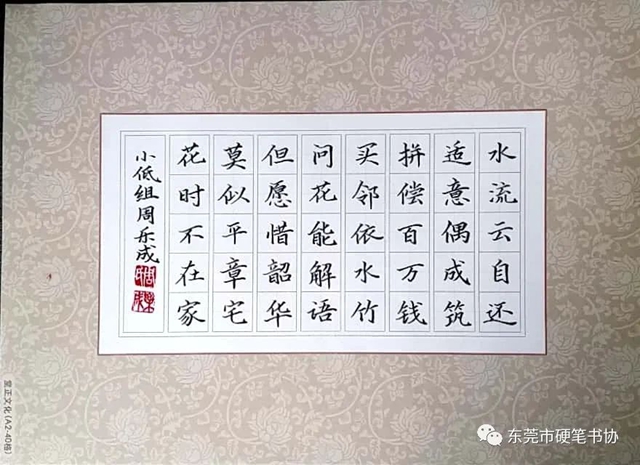 水流云自还
适意偶成筑
拼偿百万钱
买邻依水竹
问花能解语
但愿惜韶华
莫似平章宅
花时不在家
小低组周乐成
堂正文化(A2-40格)
东莞市硬笔书协